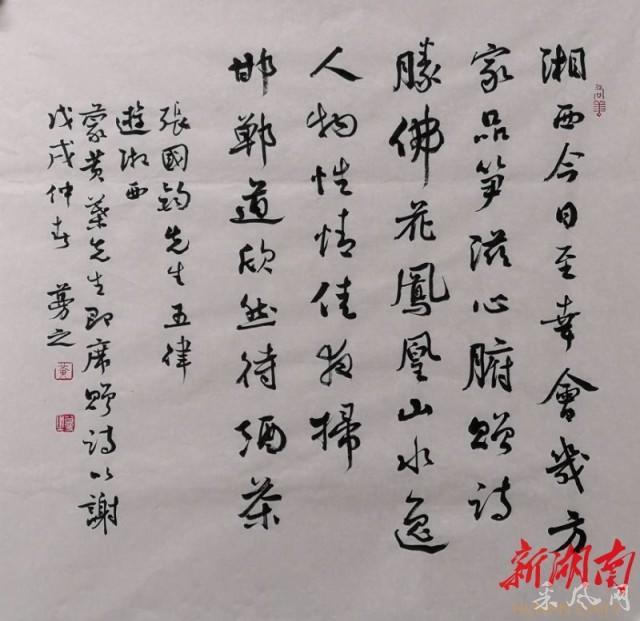 湘西今日至幸會幾方
家品笋滋心腑贈詩
勝佛花鳳凰山水逸
人物性情佳夜掃
邯鄲道欣然待酒茶
張國鈞先生五律
遊湘西
蒙黄葉先生即席贈詩以謝
戊戌仲春 之
新湖南
采风网